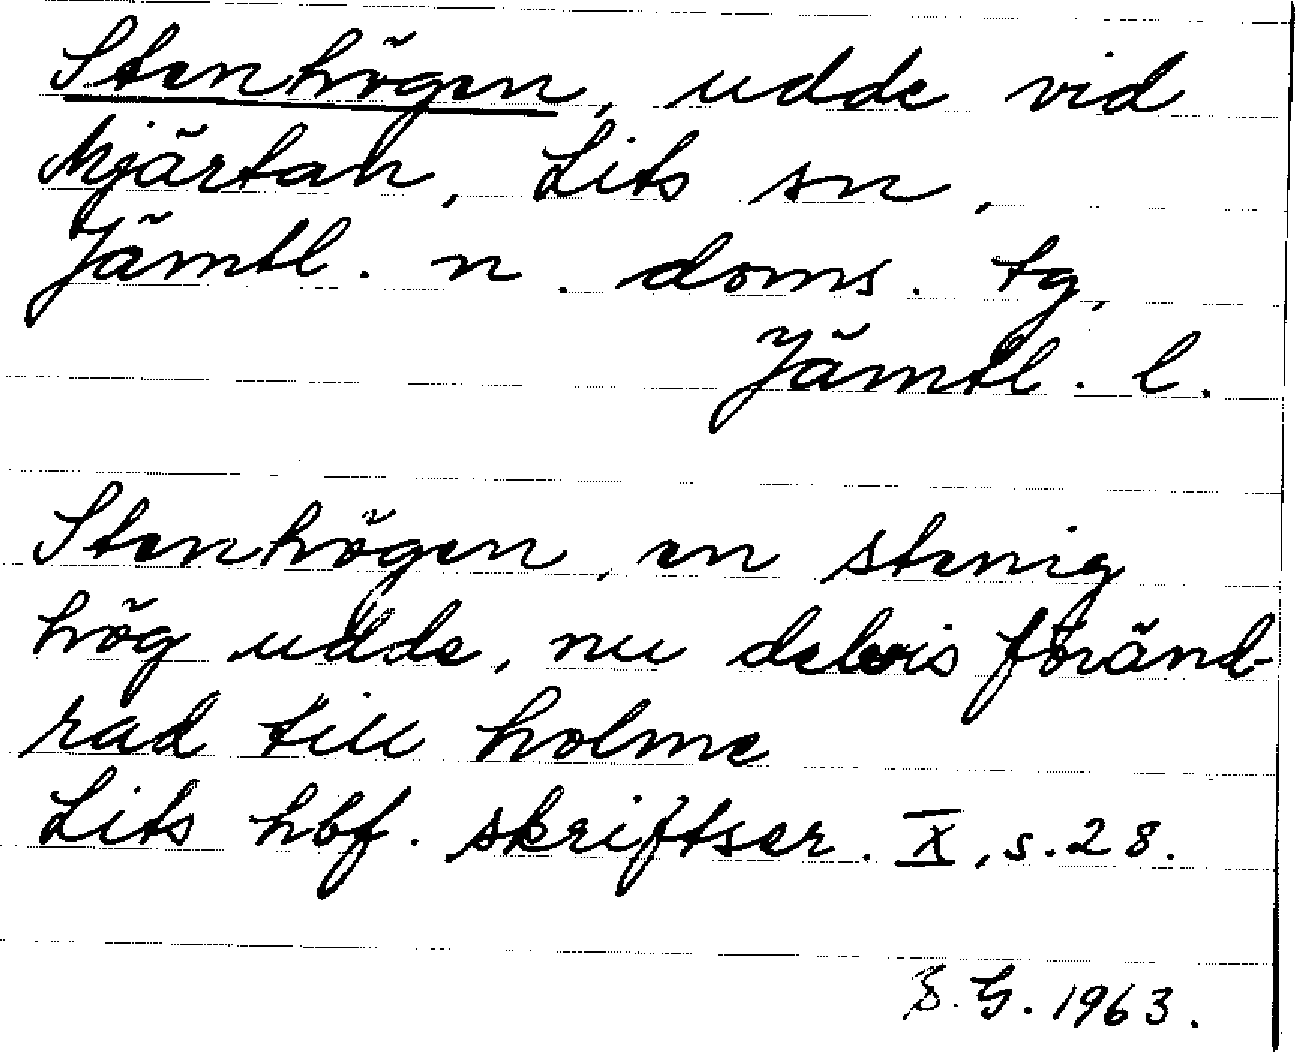 Stenhögen, udde vid
Mjärtan, Lits sn,
Jämtl. n. doms. tg,
Jämtl. l.
Stenhögen, en stenig
hög udde, nu delvis föränd-
rad till holme
Lits hbf. skriftser. X, s. 28.
S. G. 1963.